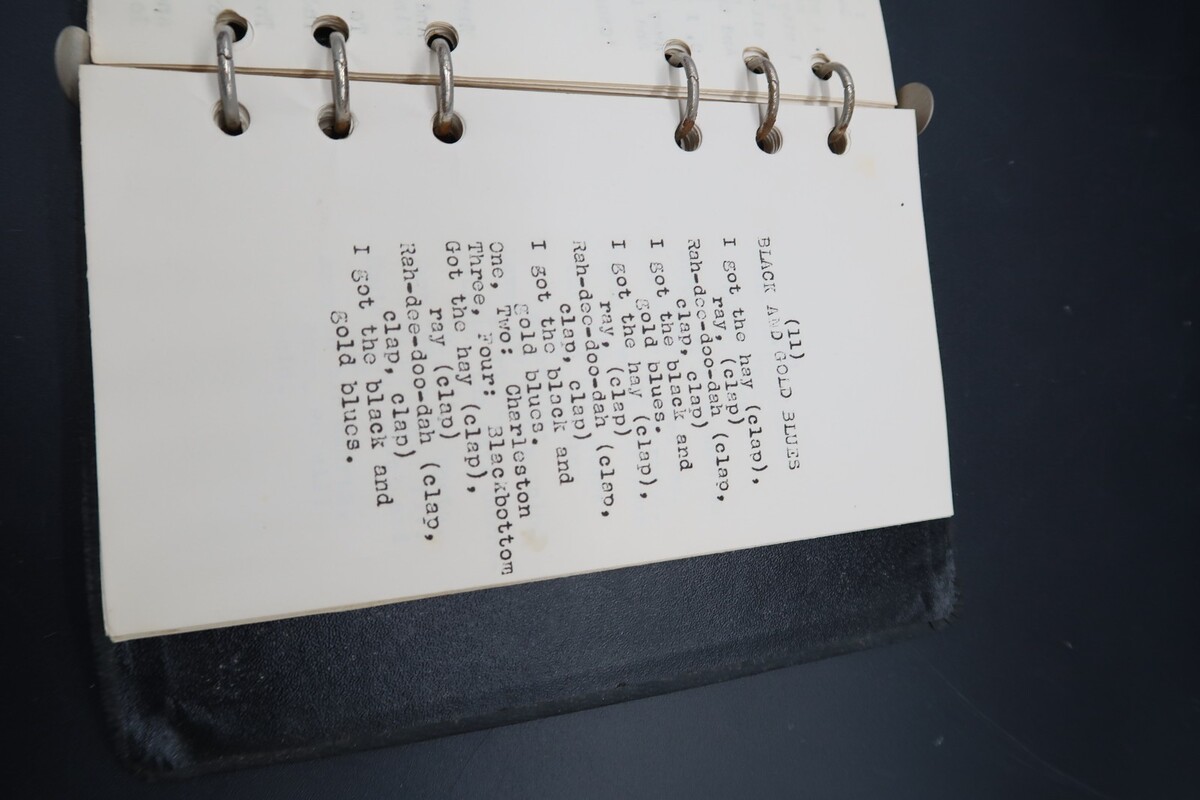 (11)
BLACK AND GOLD BLUES
I got the hay (clap),
ray, (clap)
Rah-dee-doo-dah (clap,
clap, clap)
I got the black and
gold blues.
I got the hay (clap),
ray, (clap)
Rah-dee-doo-dah (clap,
clap, clap)
I got the black and
gold blues.
One, Two: Charleston
Three, Four: Blackbottom
Got the hay (clap),
ray (clap)
Rah-dee-doo-dah (clap,
clap, clap)
I got the black and
gold blues.